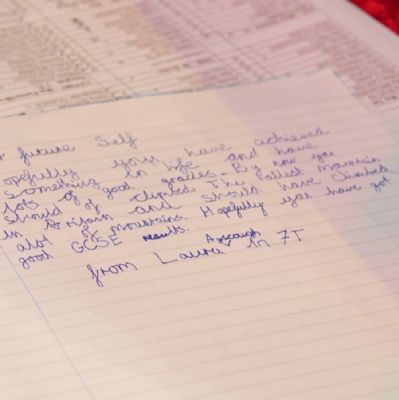 future Self
opefully you have achieved
something in life and have
lots of good grades. By now you
should of climbed The tallest mountain
in Britain and should have climbed
alot of mountains. Hopefully you have got
good GCSE results.
from Laura Ayscough in 7T